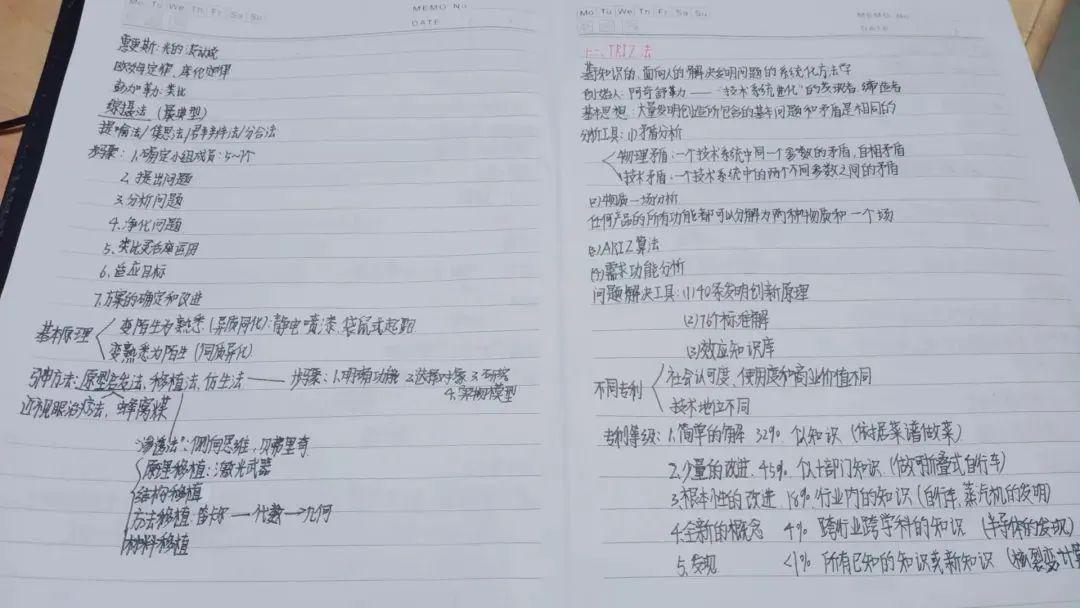 Mo Tu We Th Fr Sa Su
MEMO No.
DATE
惠更斯:光的波动说
欧姆定律、库化定律
彭加勒:类比
综摄法(最典型)
提喻法/集思法/举隅法/分合法
步骤:1.确定小组成员:5~7个
2.提出问题
3.分析问题
4.净化问题
5.类比灵活运用
6.适应目标
7.方案的确定和改进
基本原理
变陌生为熟悉(异质同化):静电喷漆、袋鼠式起跑
变熟悉为陌生(同质异化)
引申方法:原型启发法、移植法、仿生法——步骤:1.明确功能 2.选择对象 3.研究
4.实物模型
近视眼治疗法、蜂窝煤
"渗透法":侧向思维,贝弗里奇
原理移植:激光武器
结构移植
方法移植:笛卡尔→代数→几何
材料移植
Mo Tu We Th Fr Sa Su
MEMO No.
DATE
十二、TRIZ法
基于知识的、面向人的解决发明问题的系统化方法学
创始人:阿奇舒勒——"技术系统进化"的发现者、缔造者
基本思想:大量发明创造所包含的基本问题和矛盾是相同的
分析工具:(1)矛盾分析
物理矛盾:一个技术系统中同一个参数的矛盾,自相矛盾
技术矛盾:一个技术系统中的两个不同参数之间的矛盾
(2)物质-场分析
任何产品的所有功能都可以分解为两种物质和一个场
(3)ARIZ算法
(4)需求功能分析
问题解决工具:(1)40条发明创新原理
(2)76个标准解
(3)效应知识库
不同专利
社会认可度、使用度和商业价值不同
技术地位不同
专利等级:1.简单的解 32% 个人知识(依据菜谱做菜)
2.少量的改进 45% 个人部门知识(做可折叠式自行车)
3.根本性的改进 18% 行业内的知识(自行车、蒸汽机的发明)
4.全新的概念 4% 跨行业跨学科的知识(半导体的发现)
5.发现 <1% 所有已知的知识或新知识(核裂变、计算